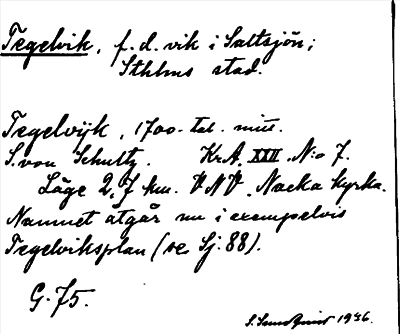 Tegelvik, f.d. vik i Saltsjön;
Sthlms stad.
Tegelvijk, 1700-tal. mitt.
S. von Schultz. Kr.A. XXII. N:o 7.
Läge 2,7 km. VNV. Nacka kyrka.
Namnet åtgår nu i exempelvis
Tegelviksplan (se Sj. 88).
G. 75.
S. Sundqvist 1936.